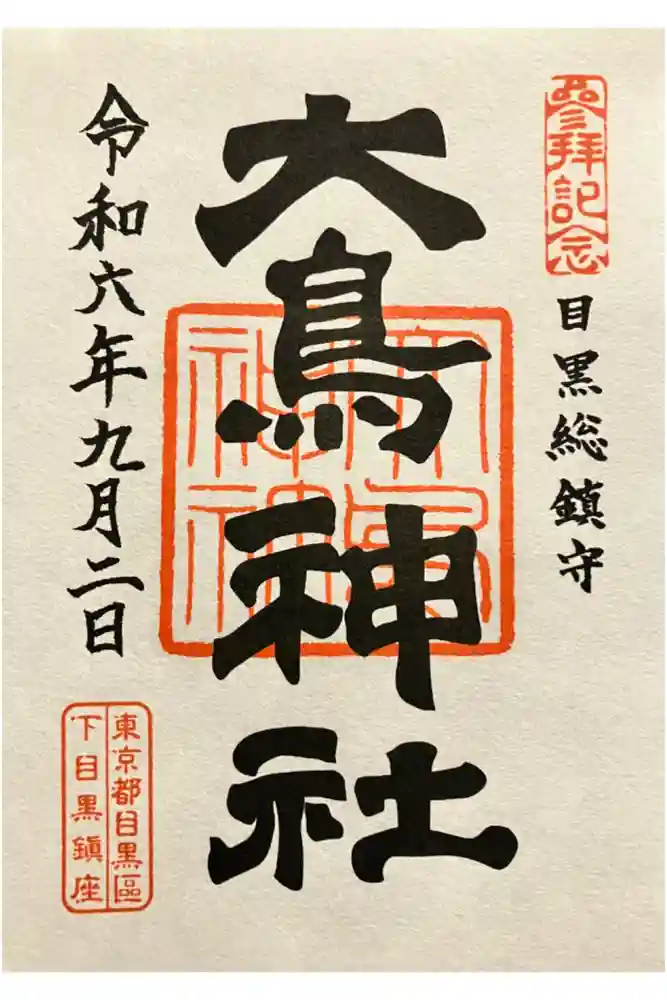 參拜記念
目黒総鎮守
大鳥神社
大鳥神社
令和六年九月二日
東京都目黒區
下目黒鎮座